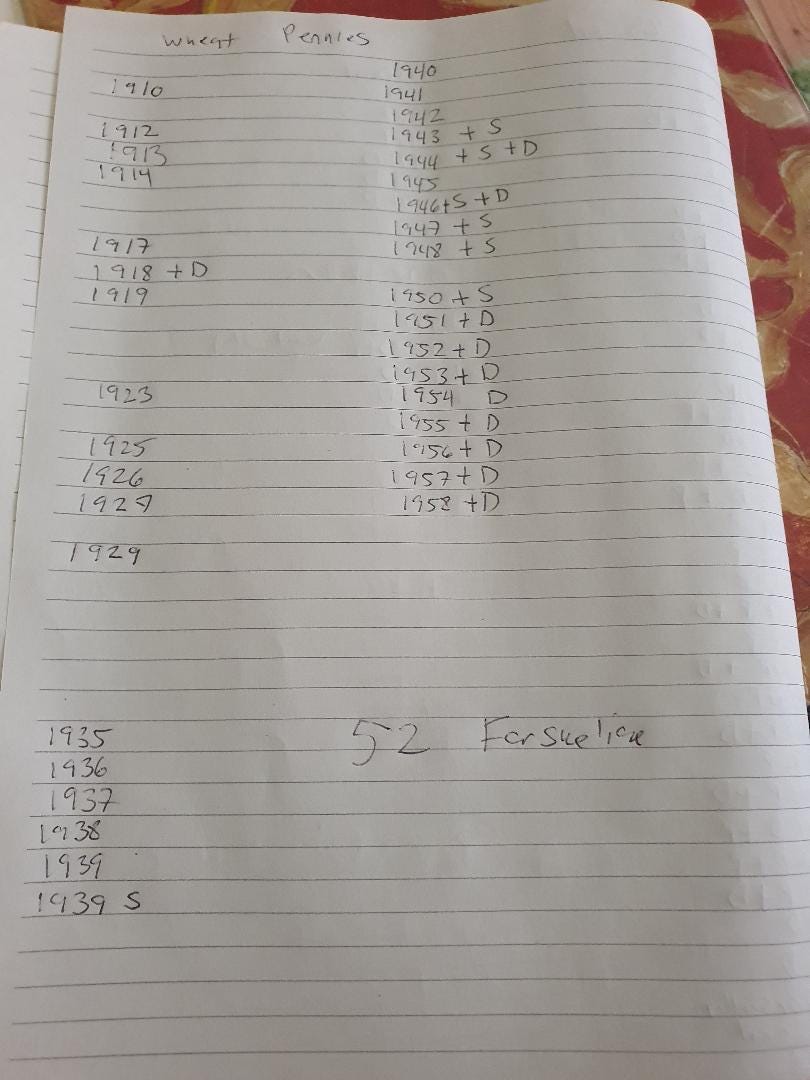 Wheat Pennies
1910
1912
1913
1914
1917
1918 + D
1919
1923
1925
1926
1927
1929
1935
1936
1937
1938
1939
1939 S
1940
1941
1942
1943 + S
1944 + S + D
1945
1946 + S + D
1947 + S
1948 + S
1950 + S
1951 + D
1952 + D
1953 + D
1954 D
1955 + D
1956 + D
1957 + D
1958 + D
52